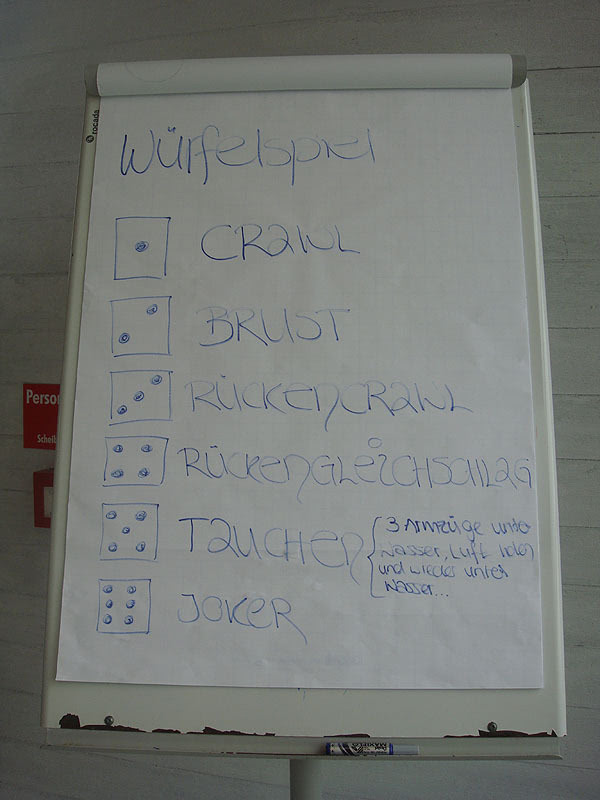 rocada
Würfelspiel
CRAWL
BRUST
RÜCKENCRAWL
RÜCKENGLEICHSCHLAG
TAUCHEN
3 Armzüge unter
Wasser, Luft holen
und wieder unter
Wasser...
JOKER
Person
Scheib